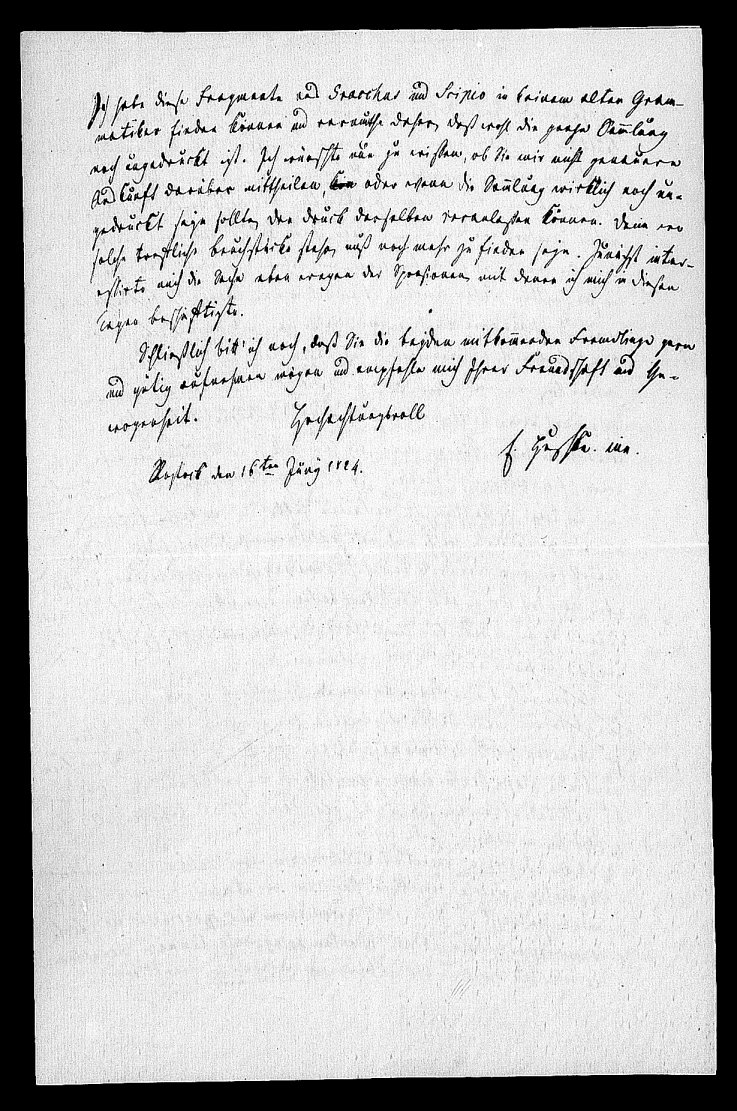 Ich habe diese Fragmente aus Gracchus und Scipio in keinem alten Gram-
matiker finden können und vermuthe daher, daß wohl die ganze Sammlung
noch ungedruckt ist. Ich wünschte nun zu wissen, ob Sie mir nicht genauere
Auskunft darüber mittheilen, oder wenn die Sammlung wirklich noch un-
gedruckt seyn sollte, den Druck derselben veranlassen können. Denn wo
solche treffliche Bruchstücke stehen, muß noch mehr zu finden seyn. Zunächst inter-
essirte mich die Sache eben wegen der Sponsionen, mit denen ich mich in diesen
Tagen beschäftigte.
Schließlich bitt' ich noch, daß Sie die beyden mitkommenden Fremdlinge gern
und gütig aufnehmen mögen und empfehle mich Ihrer Freundschaft und Ge-
wogenheit.
Hochachtungsvoll
E. Huschke.
Rostock den 16ten Juny 1824.